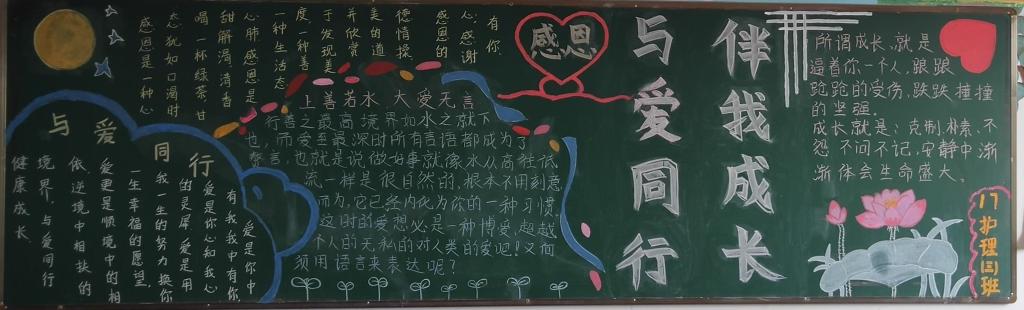 感恩
有你
心，感谢
感恩的
德情操
美的道
并欣赏
于发现美
度，一种善
一种生活态
心肺感恩是
甜解渴，清香
喝一杯绿茶，甘
态，犹如口渴时
感恩是一种心
与爱同行
爱是你中
有我，我中有你，
爱是你心和我心
的灵犀，爱是用
我一生的努力换你
一生幸福的愿望，
爱更是顺境中的相
依，逆境中相扶的
境界，与爱同行
健康成长。
上善若水，大爱无言
行善之最高境界如水之就下
也，而爱至最深时所有言语都成为了
赘言，也就是说做好事就像水从高往低
流一样是很自然的，根本不用刻意
而为，它已经内化为你的一种习惯，
这时的爱想必是一种博爱，超越
个人的无私的对人类的爱吧！又何
须用语言来表达呢？
伴我成长
与爱同行
所谓成长，就是
逼着你一个人，踉踉
跄跄的受伤，跌跌撞撞
的坚强。
成长就是：克制，朴素，不
怨不问不记，安静中渐
渐体会生命盛大。
17护理(三)班